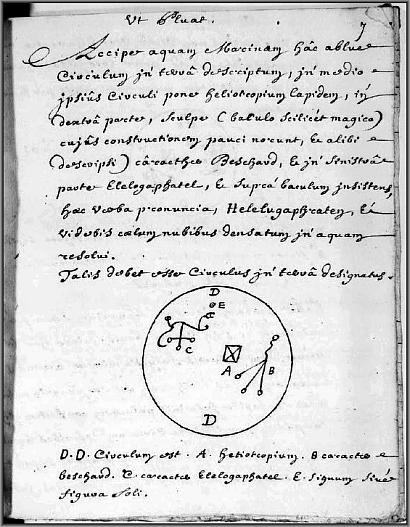 Ut pluat.
7
Accipe aquam Marinam hâc ablue
Circulum jn' terrâ descriptum, jn' medio
jpsiûs Circuli pone heliotropium lapidem, in
dextrâ parte, sculpe (baculo scilicet magico)
cujûs constructionem pauci norunt, & alibi
(descripsi) caracthere Beschard, & jn' sinistrâ
parte Elelogaphatel, & suprâ baculum jnsistens,
hæc verba pronuncia, Helelugaphraten, &
videbis cælum nubibus densatum jn' aquam
resolui.
Talis debet esse Circulus jn' terrâ designatus.
D
E
C
C
A
B
D
D.D. Circulum est. A. heliotropium. B caracter
beschard. C. caracter Elelogaphatel. E. signum sivè
figura soli.